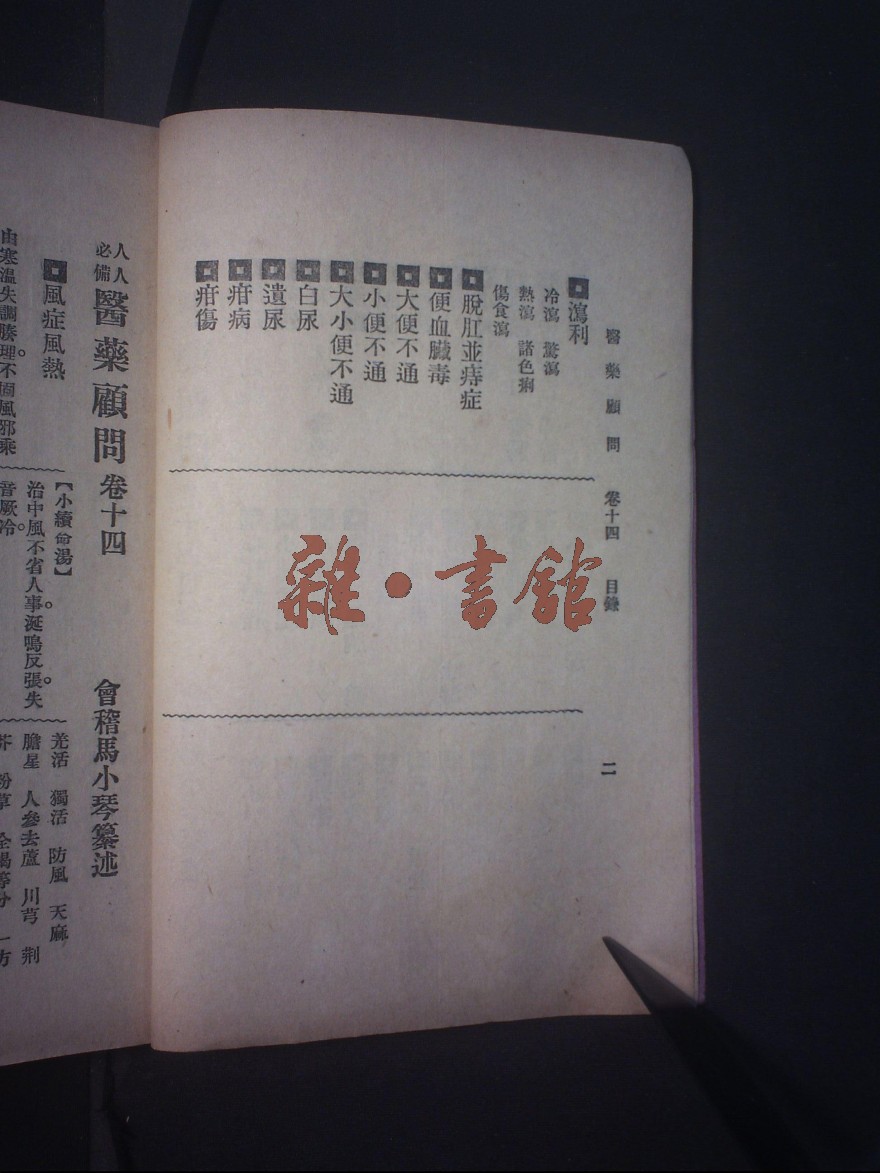 醫藥顧問 卷十四 目錄 二
瀉利
冷瀉 驚瀉
熱瀉 諸色痢
傷食瀉
脫肛並痔症
便血臟毒
大便不通
小便不通
大小便不通
白尿
遺尿
疳病
疳傷
雜·書館
人人必備 醫藥顧問 卷十四 會稽馬小琴纂述
風症風熱
由寒溫失調腠理不固風邪乘
【小續命湯】
治中風不省人事。涎鳴反張。失
音厥冷。
羌活 獨活 防風 天麻
膽星 人參去蘆 川芎 荆
芥 粉草 全蝎等分 一方